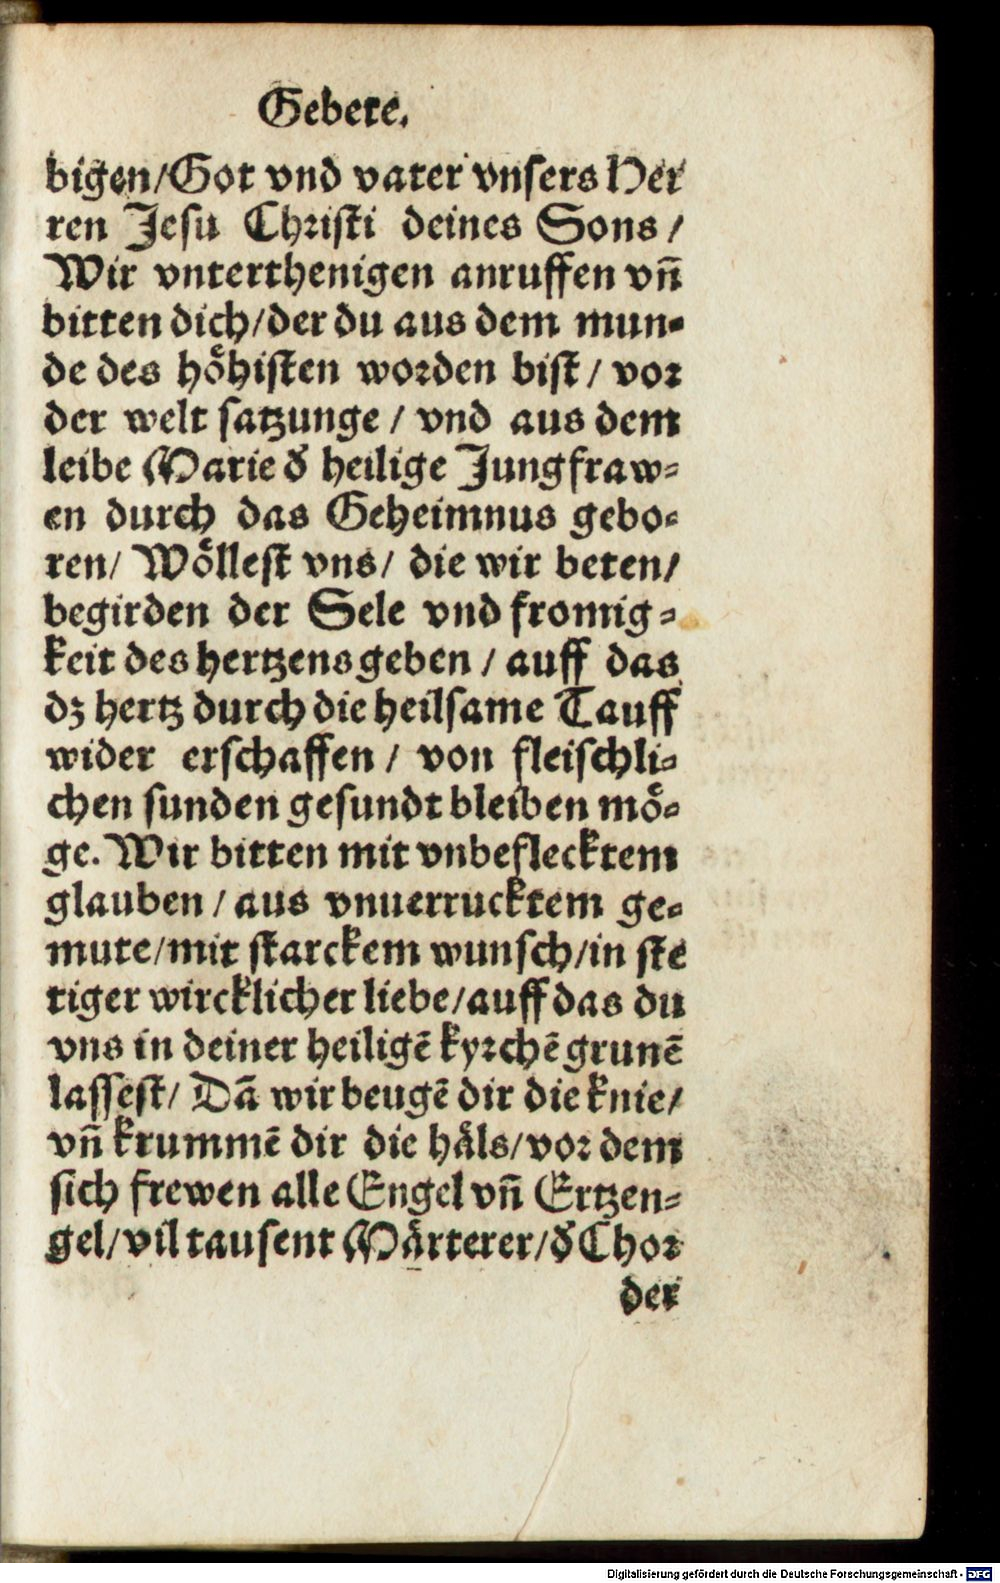 Gebete.
bigen/Got vnd vater vnsers Her
ren Jesu Christi deines Sons/
Wir vnterthenigen anruffen vn̄
bitten dich/der du aus dem mun-
de des hoͤhisten worden bist/ vor
der welt satzunge/ vnd aus dem
leibe Marie d̓ heilige Jungfraw-
en durch das Geheimnus gebo-
ren/ Woͤllest vns/ die wir beten/
begirden der Sele vnd fromig-
keit des hertzens geben/ auff das
dz hertz durch die heilsame Tauff
wider erschaffen/ von fleischli-
chen sunden gesundt bleiben moͤ-
ge. Wir bitten mit vnbeflecktem
glauben/aus vnuerrucktem ge-
mute/mit starckem wunsch/in ste
tiger wircklicher liebe/auff das du
vns in deiner heiligē kyrchē grunē
lassest/ Dā wir beugē dir die knie/
vn̄ krummē dir die haͤls/vor dem
sich frewen alle Engel vn̄ Ertzen-
gel/vil tausent Maͤrterer/d̓ Chor
der
Digitalisierung gefördert durch die Deutsche Forschungsgemeinschaft - DFG